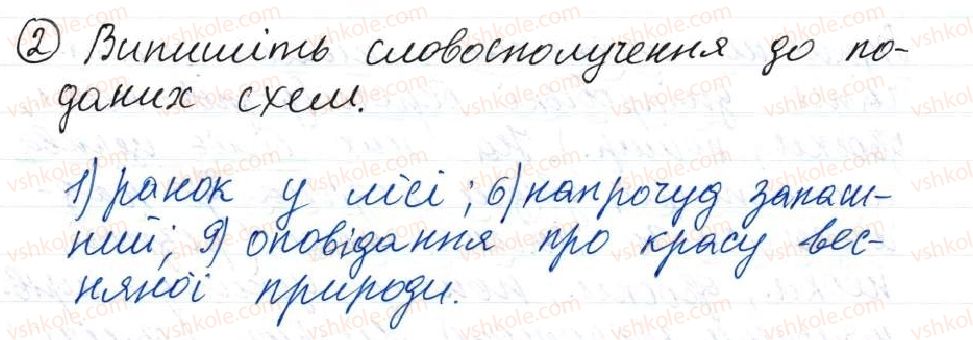 ② Випишіть словосполучення до по-
даних схем.
1) ранок у лісі; 6) напрочуд запаш-
ний; 9) оповідання про красу вес-
няної природи.